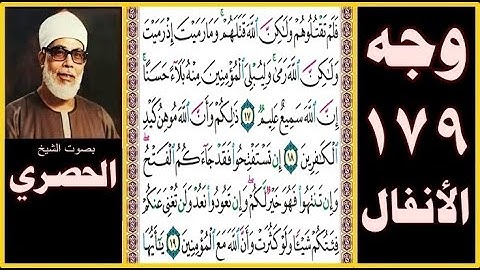 وجه
١٧٩
الأنفال
فَلَمْ تَقْتُلُوهُمْ وَلَٰكِنَّ ٱللَّهَ قَتَلَهُمْ ۚ وَمَا رَمَيْتَ إِذْ رَمَيْتَ
وَلَٰكِنَّ ٱللَّهَ رَمَىٰ ۚ وَلِيُبْلِيَ ٱلْمُؤْمِنِينَ مِنْهُ بَلَآءً حَسَنًا ۚ
إِنَّ ٱللَّهَ سَمِيعٌ عَلِيمٌ ١٧ ذَٰلِكُمْ وَأَنَّ ٱللَّهَ مُوهِنُ كَيْدِ
ٱلْكَٰفِرِينَ ١٨ إِن تَسْتَفْتِحُوا۟ فَقَدْ جَآءَكُمُ ٱلْفَتْحُ ۖ
وَإِن تَنتَهُوا۟ فَهُوَ خَيْرٌ لَّكُمْ ۖ وَإِن تَعُودُوا۟ نَعُدْ وَلَن تُغْنِيَ عَنكُمْ
فِئَتُكُمْ شَيْـًٔا وَلَوْ كَثُرَتْ وَأَنَّ ٱللَّهَ مَعَ ٱلْمُؤْمِنِينَ ١٩ يَٰٓأَيُّهَا
بصوت الشيخ
الحصري